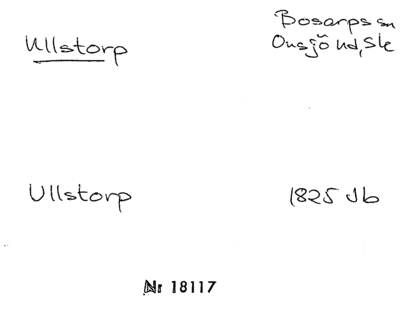 Ullstorp
Bosarps sn
Onsjö hd, Ske
Ullstorp
1825 Jb
Nr 18117